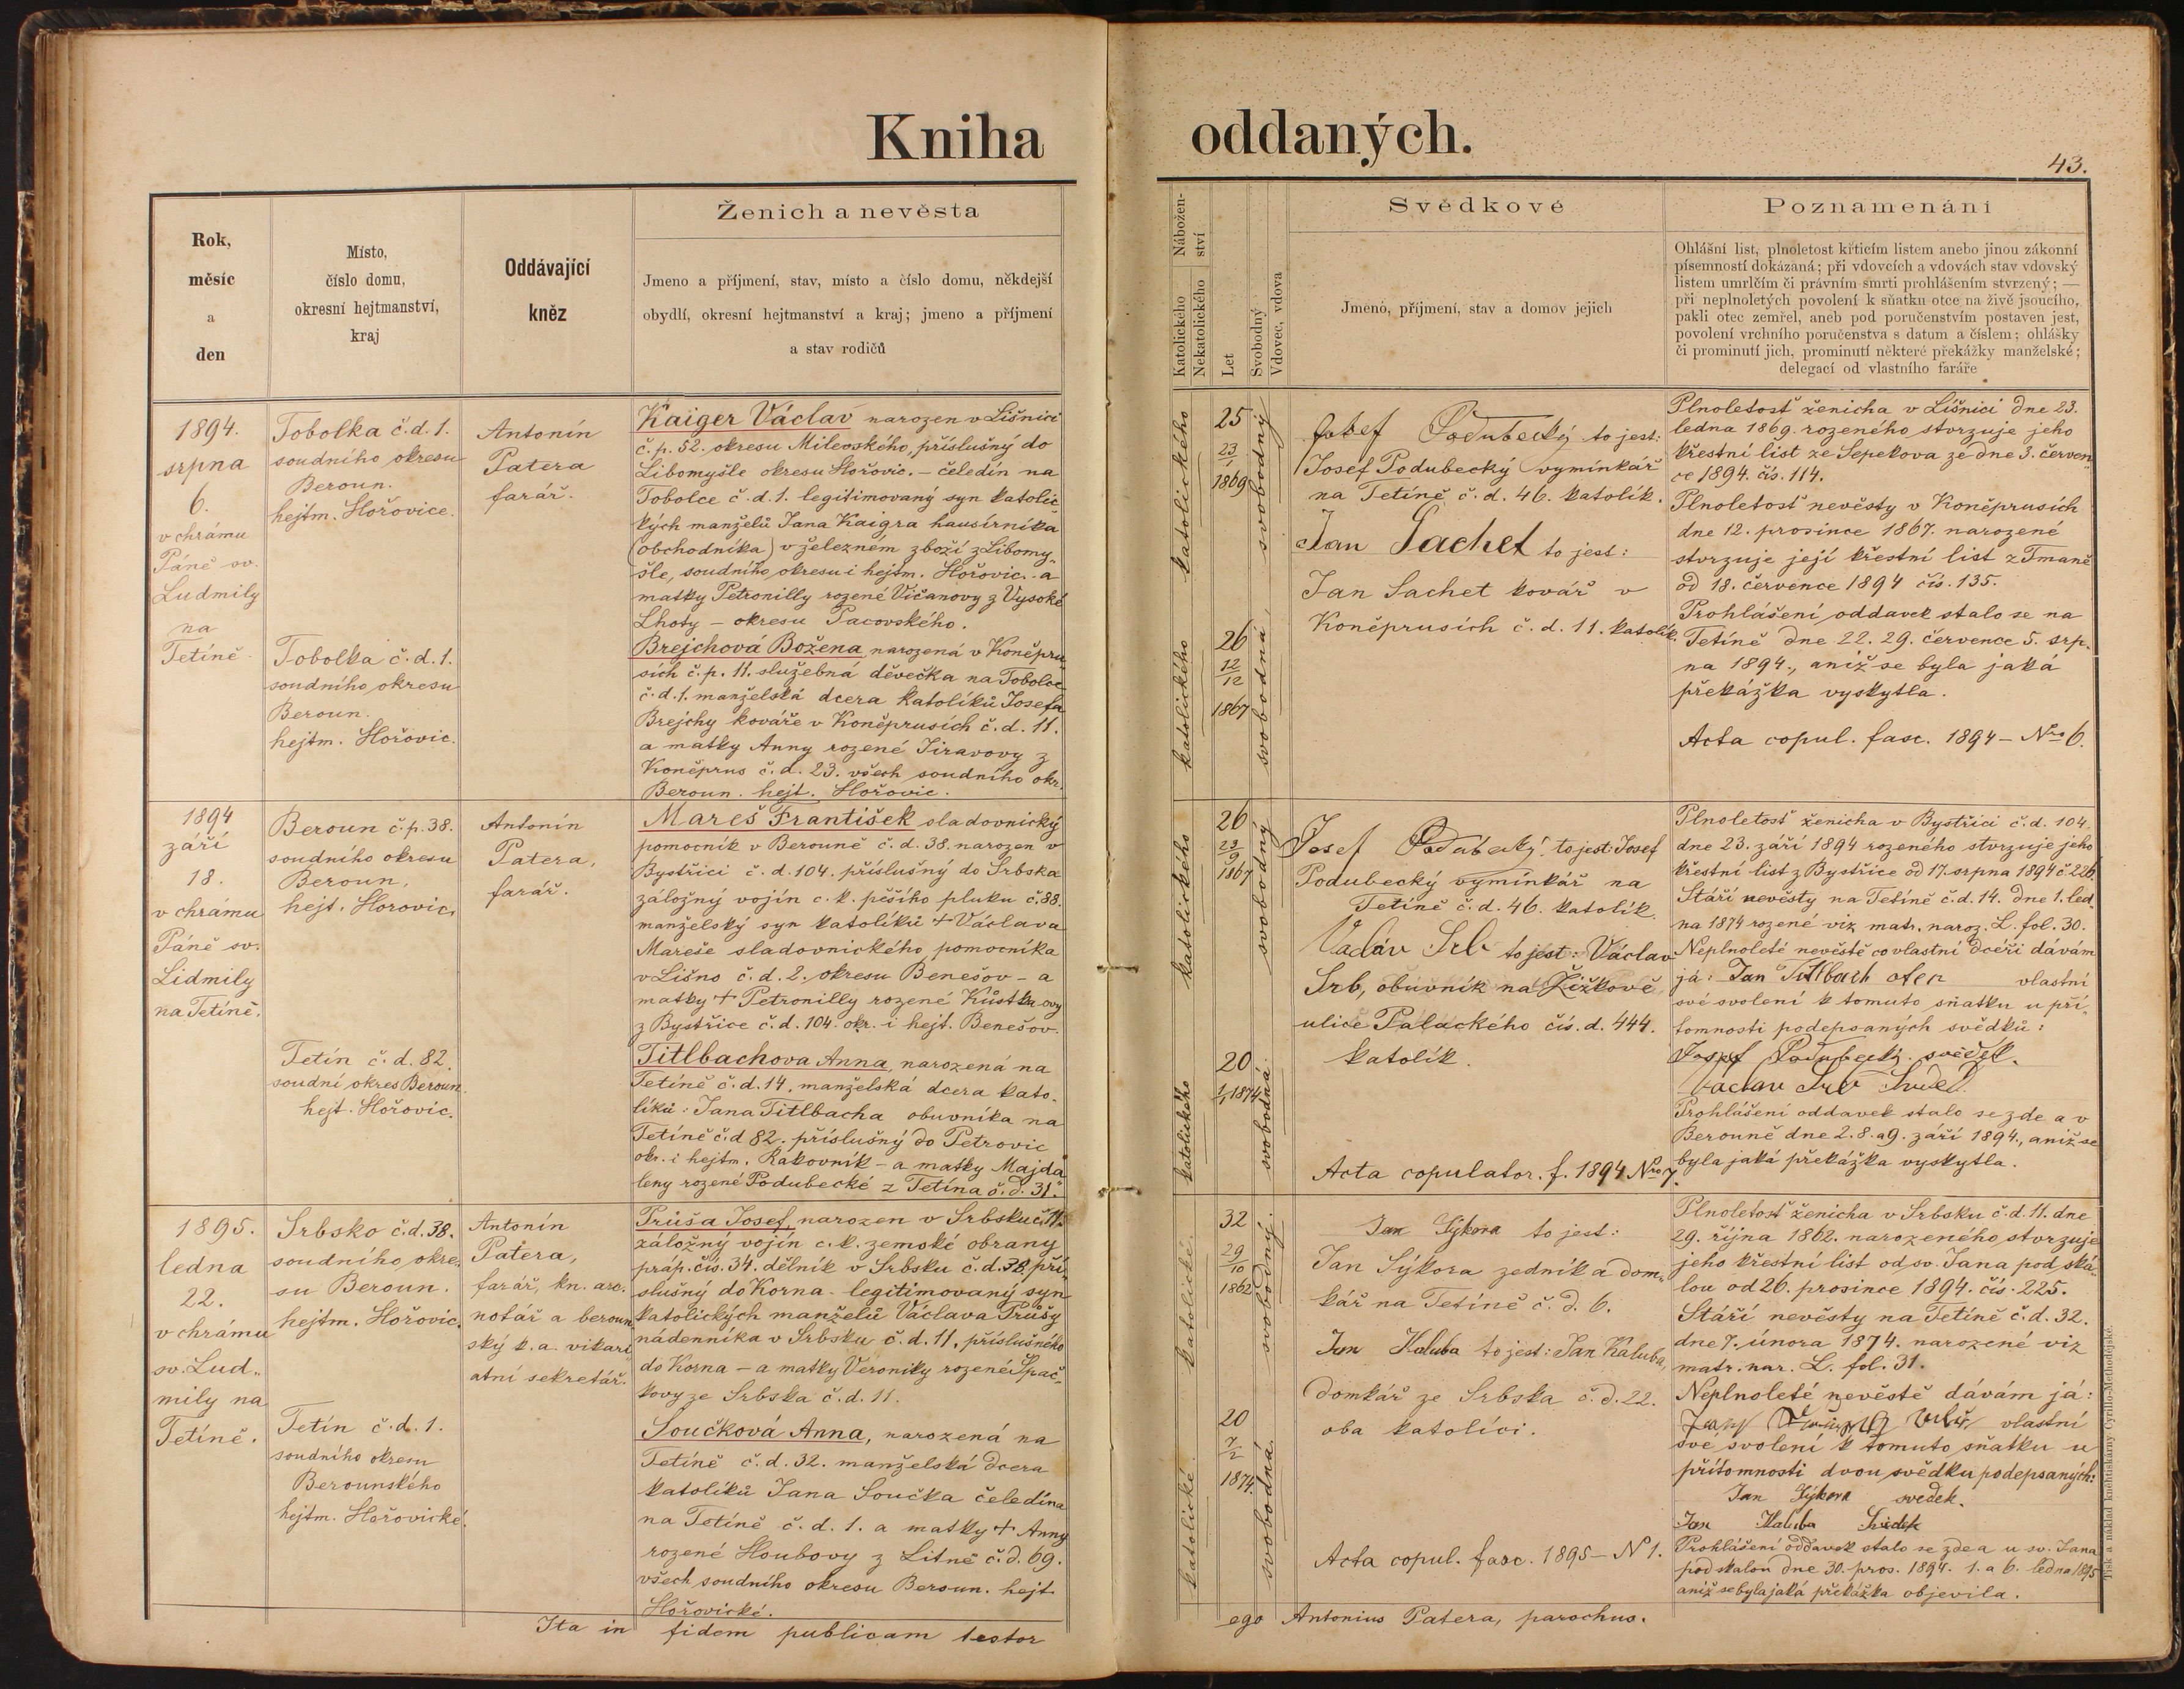 Kniha
oddaných.
43.
Rok,
měsíc
a
den
Místo,
číslo domu,
okresní hejtmanství,
kraj
Oddávající
kněz
Ženich a nevěsta
Jmeno a příjmení, stav, místo a číslo domu, někdejší
obydlí, okresní hejtmanství a kraj; jmeno a příjmení
a stav rodičů
Nábožen-
ství
Katolického
Nekatolického
Let
Svobodný
Vdovec, vdova
Svědkové
Jmeno, příjmení, stav a domov jejich
Poznamenání
Ohlášní list, plnoletost křticím listem anebo jinou zákonní
písemností dokázaná; při vdovcích a vdovách stav vdovský
listem umrlčím či právním smrti prohlášením stvrzený; —
při neplnoletých povolení k sňatku otce na živě jsoucího,
pakli otec zemřel, aneb pod poručenstvím postaven jest,
povolení vrchního poručenstva s datum a číslem; ohlášky
či prominutí jich, prominutí některé překážky manželské;
delegací od vlastního faráře
1894.
srpna
6.
v chrámu
Páně sv.
Ludmily
na
Tetíně.
Tobolka č.d. 1.
soudního okresu
Beroun.
hejtm. Hořovice.
Tobolka č.d. 1.
soudního okresu
Beroun.
hejtm. Hořovic.
Antonín
Patera
farář.
Kaiger Václav narozen v Lišnici
č.p. 52. okresu Milevského, příslušný do
Libomyšle okresu Hořovic. – čeledín na
Tobolce č.d. 1. legitimovaný syn katolic-
kých manželů Jana Kaigra hausírníka
(obchodníka) v železném zboží z Libomy-
šle, soudního okresu i hejtm. Hořovic. a
matky Petronilly rozené Vičanovy z Vysoké
Lhoty – okresu Pacovského.
Brejchová Božena narozená v Koněpru-
sích č.p. 11. služebná děvečka na Tobolce
č.d. 1. manželská dcera katolíků Josefa
Brejchy kováře v Koněprusích č.d. 11.
a matky Anny rozené Jiravovy z
Koněprus č.d. 23. všech soudního okr.
Beroun. hejt. Hořovic.
katolického
25
23/1
1869
svobodný
katolického
26
12/12
1867
svobodná
Josef Podubecký to jest:
Josef Podubecký vymínkář
na Tetíně č.d. 46. katolík.
Jan Sachet to jest:
Jan Sachet kovář v
Koněprusích č.d. 11. katolík.
Plnoletosť ženicha v Lišnici dne 23.
ledna 1869. rozeného stvrzuje jeho
křestní list ze Sepekova ze dne 3. červen-
ce 1894. čís. 114.
Plnoletosť nevěsty v Koněprusích
dne 12. prosince 1867. narozené
stvrzuje její křestní list z Tmaně
od 18. července 1894 čís. 135.
Prohlášení oddavek stalo se na
Tetíně dne 22. 29. července 5. srp-
na 1894., aniž se byla jaká
překážka vyskytla.
Acta copul. fasc. 1894 – Nro 6.
1894
září
18.
v chrámu
Páně sv.
Lidmily
na Tetíně.
Beroun č.p. 38.
soudního okresu
Beroun,
hejt. Horovic.
Tetín č.d. 82.
soudní okres Beroun.
hejt. Hořovic.
Antonín
Patera,
farář.
Mareš František sladovnický
pomocník v Berouně č.d. 38. narozen v
Bystřici č.d. 104. příslušný do Srbska
záložný vojín c.k. pěšího pluku č. 88.
manželský syn katolíků + Václava
Mareše sladovnického pomocníka
v Lišno č.d. 2. okresu Benešov – a
matky + Petronilly rozené Kůstkovy
z Bystřice č.d. 104. okr. i hejt. Benešov.
Titlbachova Anna, narozená na
Tetíně č.d. 14, manželská dcera kato-
líků: Jana Titlbacha obuvníka na
Tetíně č.d 82. příslušný do Petrovic
okr. i hejtm. Rakovník – a matky Majda-
leny rozené Podubecké z Tetína č.d. 31.
katolického
26
23/9
1867
svobodný
katolického
20
1/1 1874
svobodná.
Josef Podubecký. to jest: Josef
Podubecký vymínkář na
Tetíně č.d. 46. katolík.
Vaclav Srb to jest: Václav
Srb, obuvník na Žižkově
ulice Palackého čís. d. 444.
katolík.
Acta copulator. f. 1894 Nro 7.
Plnoletosť ženicha v Bystřici č.d. 104.
dne 23. září 1894 rozeného stvrzuje jeho
křestní list z Bystřice od 17. srpna 1894 č. 226.
Stáří nevěsty na Tetíně č.d. 14. dne 1. led-
na 1874 rozené viz matr. naroz. L. fol. 30.
Neplnoleté nevěstě co vlastní dceři dávám
já: Jan Titlbach otec vlastní
své svolení k tomuto sňatku u pří-
tomnosti podepsaných svědků:
Josef Podubecký. svědek.
Vaclav Srb Svědek
Prohlášení oddavek stalo se zde a v
Berouně dne 2. 8. a 9. září 1894., aniž se
byla jaká překážka vyskytla.
1895.
ledna
22.
v chrámu
sv. Lud-
mily na
Tetíně.
Srbsko č.d. 38.
soudního okre-
su Beroun.
hejtm. Hořovic.
Tetín č.d. 1.
soudního okresu
Berounského
hejtm. Hořovické.
Antonín
Patera,
farář, kn. arc.
notář a beroun-
ský k.a. vikari-
atní sekretář.
Průša Josef, narozen v Srbsku č. 11.
záložný vojín c.k. zemské obrany
práp. čís. 34. dělník v Srbsku č.d. 38. pří-
slušný do Korna – legitimovaný syn
katolických manželů Václava Průšy
nádenníka v Srbsku č.d. 11, příslušného
do Korna – a matky Veroniky rozené Špač-
kovy ze Srbska č.d. 11.
Součková Anna, narozená na
Tetíně č.d. 32. manželská dcera
katolíků Jana Součka čeledína
na Tetíně č.d. 1. a matky + Anny
rozené Houbovy z Litně č.d. 69.
všech soudního okresu Beroun. hejt.
Hořovické.
katolické
32
29/10
1862
svobodný.
katolické
20
7/2
1874.
svobodná.
Jan Sýkora to jest:
Jan Sýkora zedník a dom-
kář na Tetíně č.d. 6.
Jan Kaluba to jest: Jan Kaluba,
domkář ze Srbska č.d. 22.
oba katolíci.
Acta copul. fasc. 1895 – N 1.
Plnoletosť ženicha v Srbsku č.d. 11. dne
29. října 1862. narozeného stvrzuje
jeho křestní list od sv. Jana pod ská-
lou od 26. prosince 1894. čís. 225.
Stáří nevěsty na Tetíně č.d. 32.
dne 7. února 1874. narozené viz
matr. nar. L. fol. 31.
Neplnoleté nevěstě dávám já:
vlastní
své svolení k tomuto sňatku u
přítomnosti dvou svědku podepsaných:
Jan Sýkora svedek.
Jan Kaluba Svedek
Prohlášení oddavek stalo se zde a u sv. Jana
pod skalou dne 30. pros. 1894. 1. a 6. ledna 1895
aniž se byla jaká překážka objevila.
Ita in fidem publicam testor
ego Antonius Patera, parochus.
Tisk a náklad knihtiskárny Cyrillo-Methodějské.